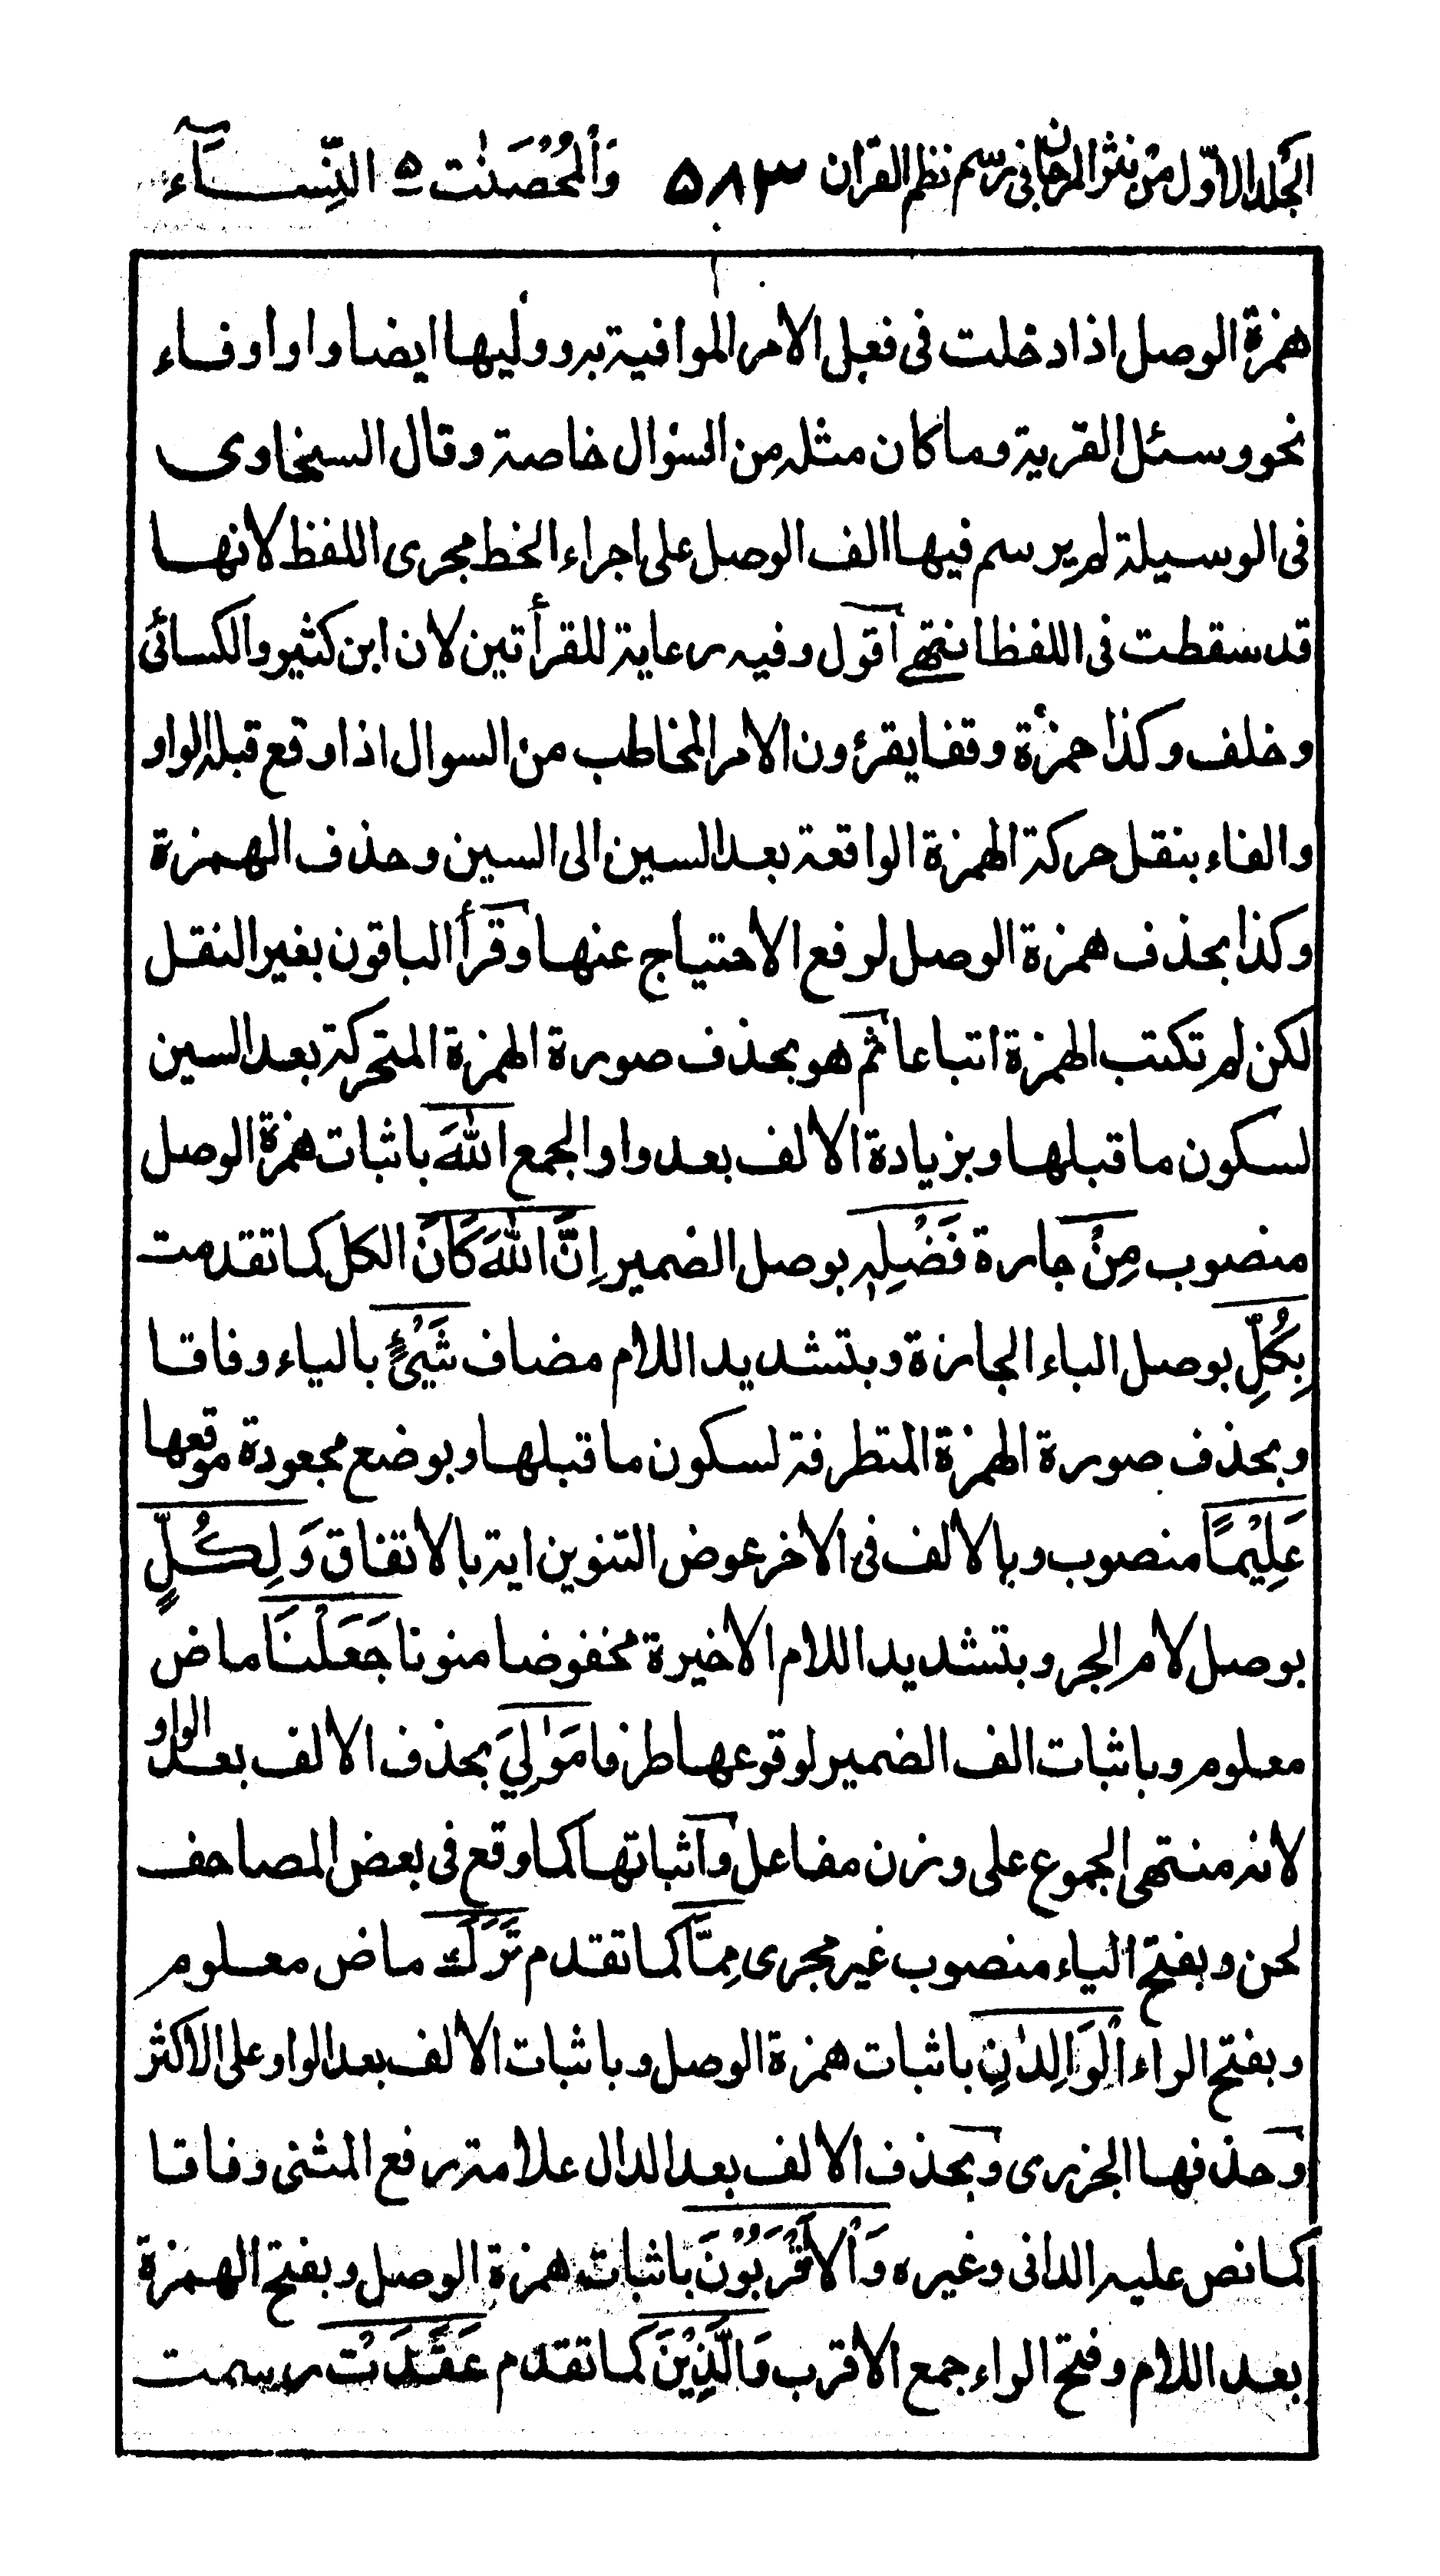 الجلد الاوّل من نثر المرجان في رسم نظم القران ۵۸۳ وَٱلْمُحْصَنٰت ۵ النِّسَآء
همزة الوصل اذا دخلت فى فعل الامر الموافية به ووليها ايضا واو او فاء
نحو وسئل القرية وما كان مثله من السؤال خاصة وقال السخاوى
فى الوسيلة لم يرسم فيها الف الوصل على اجراء الخط مجرى اللفظ لانها
قد سقطت فى اللفظ انتهى اقول وفيه رعاية للقرأتين لان ابن كثير والكسائى
وخلف وكذا حمزة وقفا يقرءون الامر المخاطب من السوال اذا وقع قبله الواو
والفاء بنقل حركة الهمزة الواقعة بعد السين الى السين وحذف الهمزة
وكذا بحذف همزة الوصل لرفع الاحتياج عنها وقرأ الباقون بغير النقل
لكن لم تكتب الهمزة اتباعا ثم هو بحذف صورة الهمزة المتحركة بعد السين
لسكون ما قبلها وبزيادة الالف بعد واو الجمع اللّٰهَ باثبات همزة الوصل
منصوب مِنْ جارة فَضْلِهٖ بوصل الضمير اِنَّ اللّٰهَ كَانَ الكل كما تقدمت
بِكُلِّ بوصل الباء الجارة وبتشديد اللام مضاف شَيْءٍ بالياء وفاقا
وبحذف صورة الهمزة المتطرفة لسكون ما قبلها وبوضع مجعودة موقعها
عَلِيْمًا منصوب وبالالف فى الاخر عوض التنوين اية بالاتفاق وَلِكُلٍّ
بوصل لام الجر وبتشديد اللام الاخيرة مخفوضا منونا جَعَلْنَا ماض
معلوم وباثبات الف الضمير لوقوعها طرفا مَوٰلِيَ بحذف الالف بعد الواو
لانه منتهى الجموع على وزن مفاعل واثباتها كما وقع فى بعض المصاحف
لحن وبفتح الياء منصوب غير مجرى مِمَّا كما تقدم تَرَكَ ماض معلوم
وبفتح الراء ٱلْوَالِدٰنِ باثبات همزة الوصل وباثبات الالف بعد الواو على الاكثر
وحذفها الجزرى وبحذف الالف بعد الدال علامة رفع المثنى وفاقا
كما نص عليه الدانى وغيره وَٱلْاَقْرَبُوْنَ باثبات همزة الوصل وبفتح الهمزة
بعد اللام وفتح الراء جمع الاقرب وَالَّذِيْنَ كما تقدم عَقَدَتْ رسمت